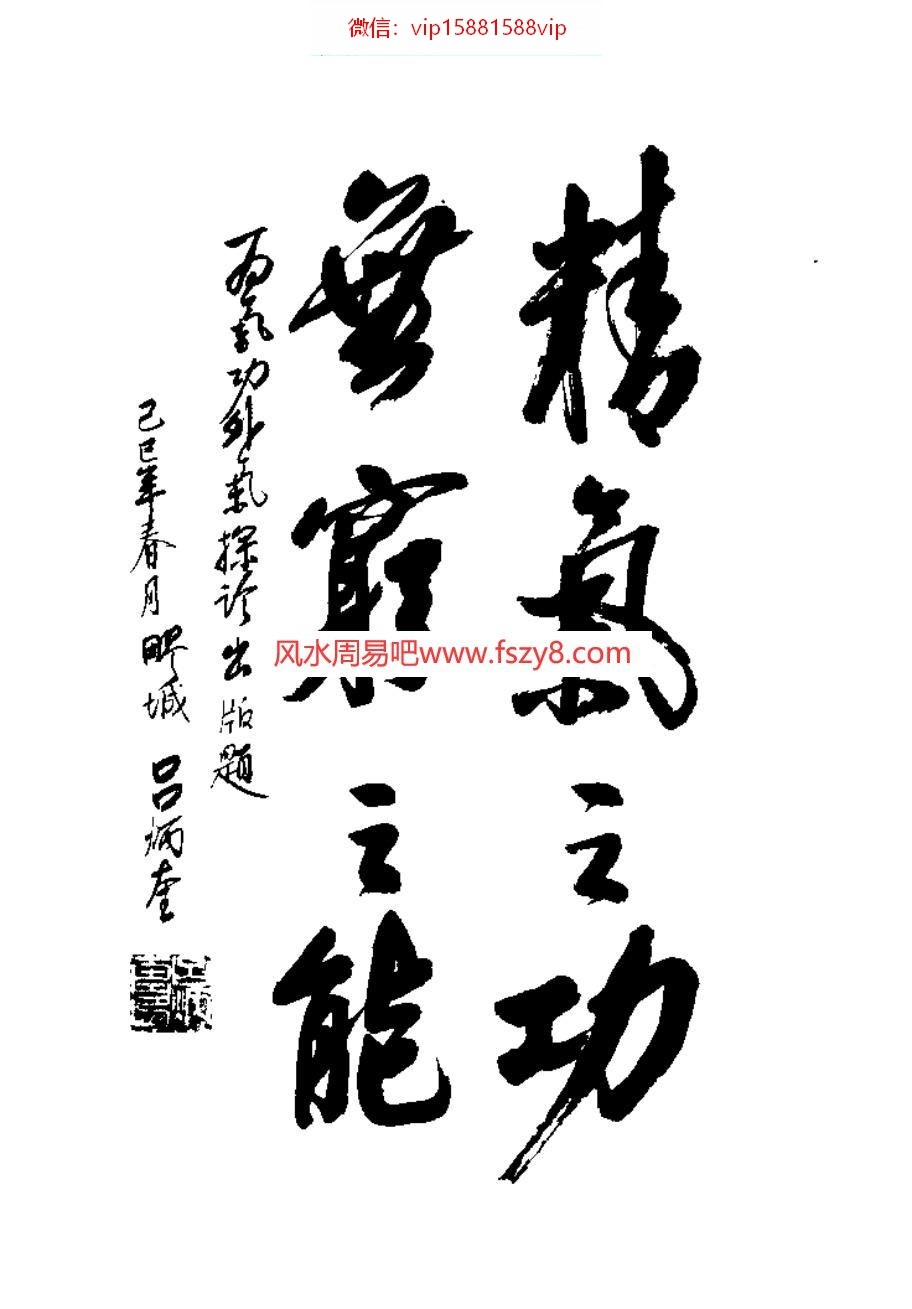 微信：vip15881588vip
精氣之功
無窮之能
为氣功外氣探诊出版题
己巳年春月 城 吕炳奎
风水周易吧www.fszy8.com